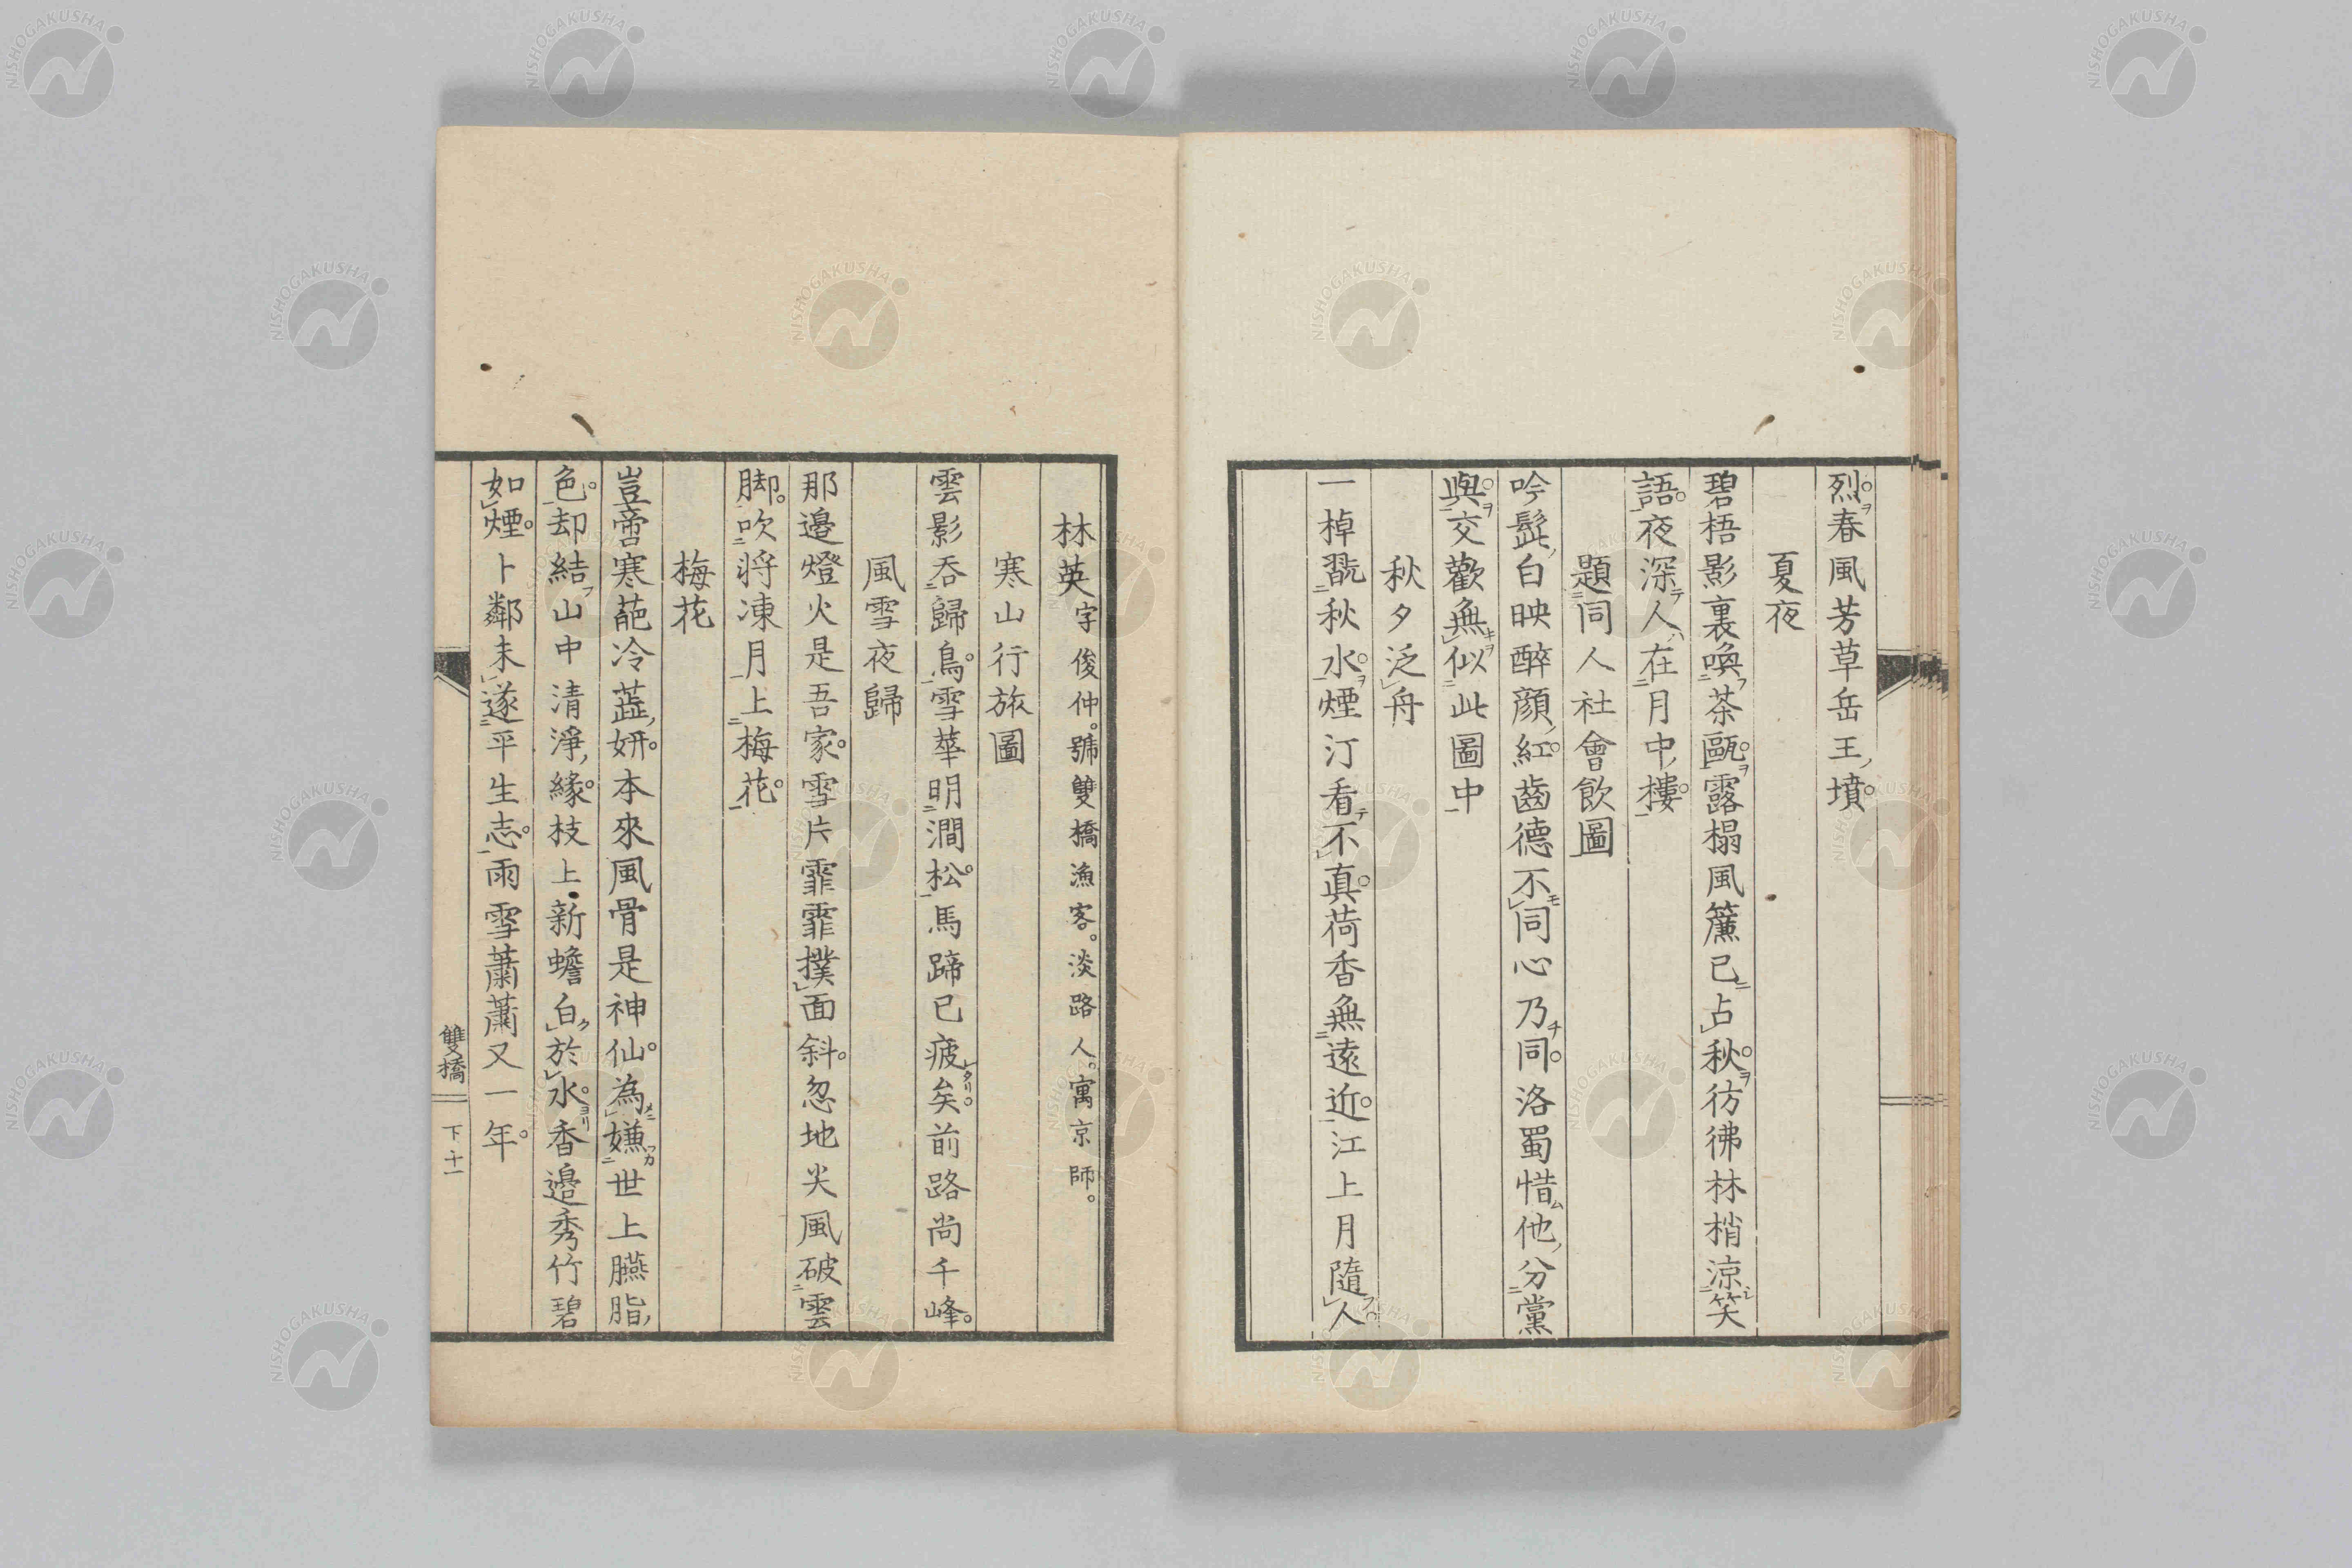 烈春風芳草岳王墳
夏夜
碧梧影裏喚茶甌露榻風簾已占秋彷彿林梢涼笑
語夜深人在月中樓
題同人社會飲圖
吟髭白映醉顔紅齒德不同心乃同洛蜀惜他分黨
與交歡無似此圖中
秋夕泛舟
一棹翫秋水煙汀看不真荷香無遠近江上月隨人
林英字俊仲。號雙橋漁客。淡路人。寓京師。
寒山行旅圖
雲影呑歸鳥雪華明澗松馬蹄已疲矣前路尚千峰
風雪夜歸
那邊燈火是吾家雪片霏霏撲面斜忽地尖風破雲
脚吹將凍月上梅花
梅花
豈啻寒葩冷蘂妍本來風骨是神仙為嫌世上臙脂
色却結山中清淨緣枝上新蟾白於水香邊秀竹碧
如煙卜鄰未遂平生志雨雪蕭蕭又一年
雙橋 下 十一
NISHOGAKUSHA